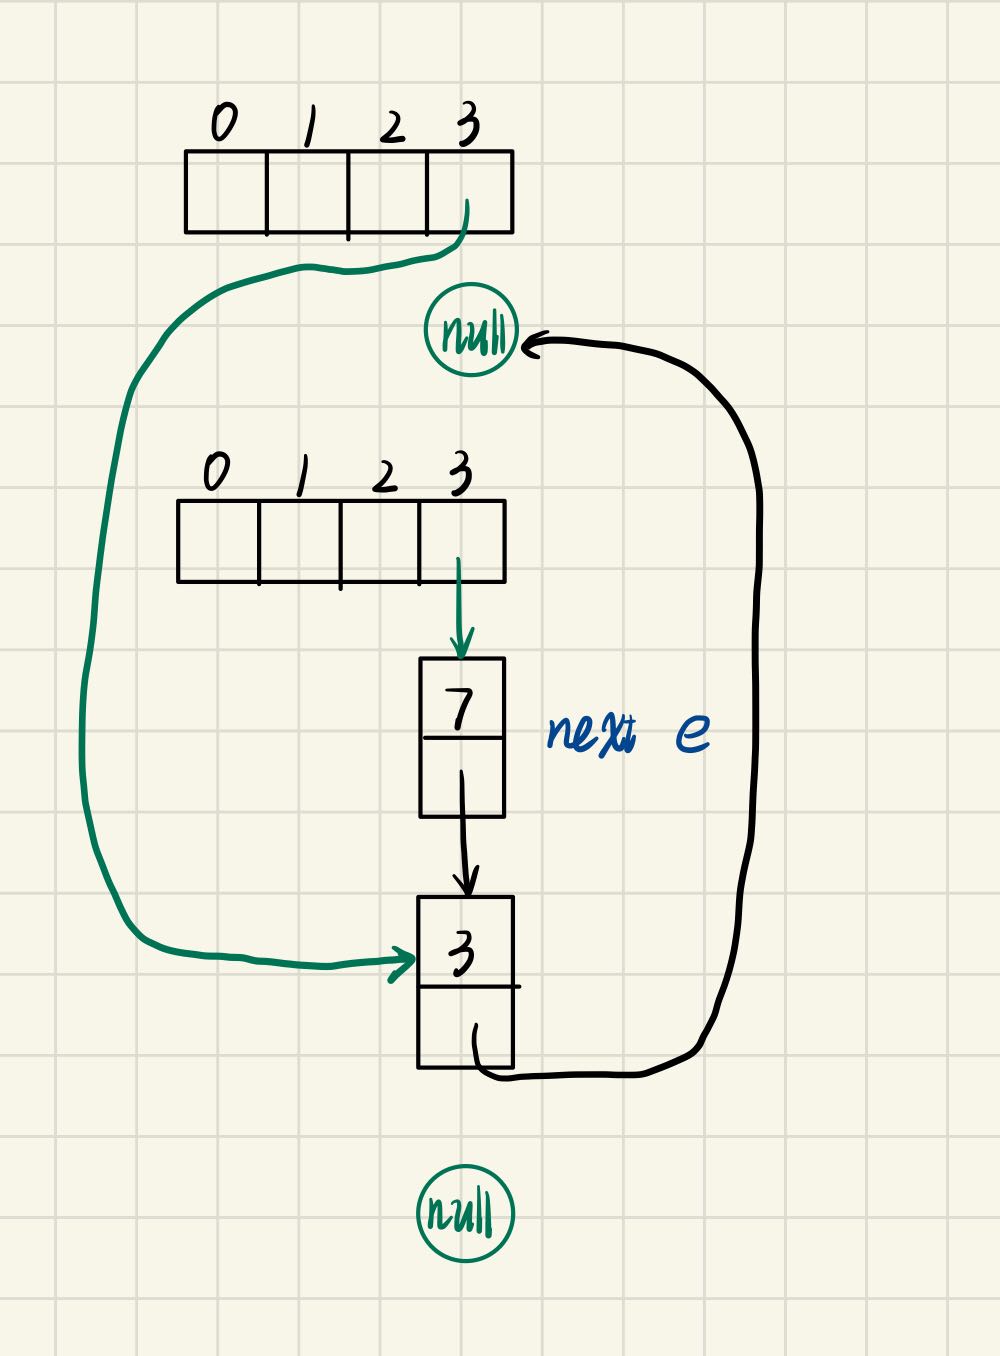 0 1 2 3
null
0 1 2 3
7
next e
3
null